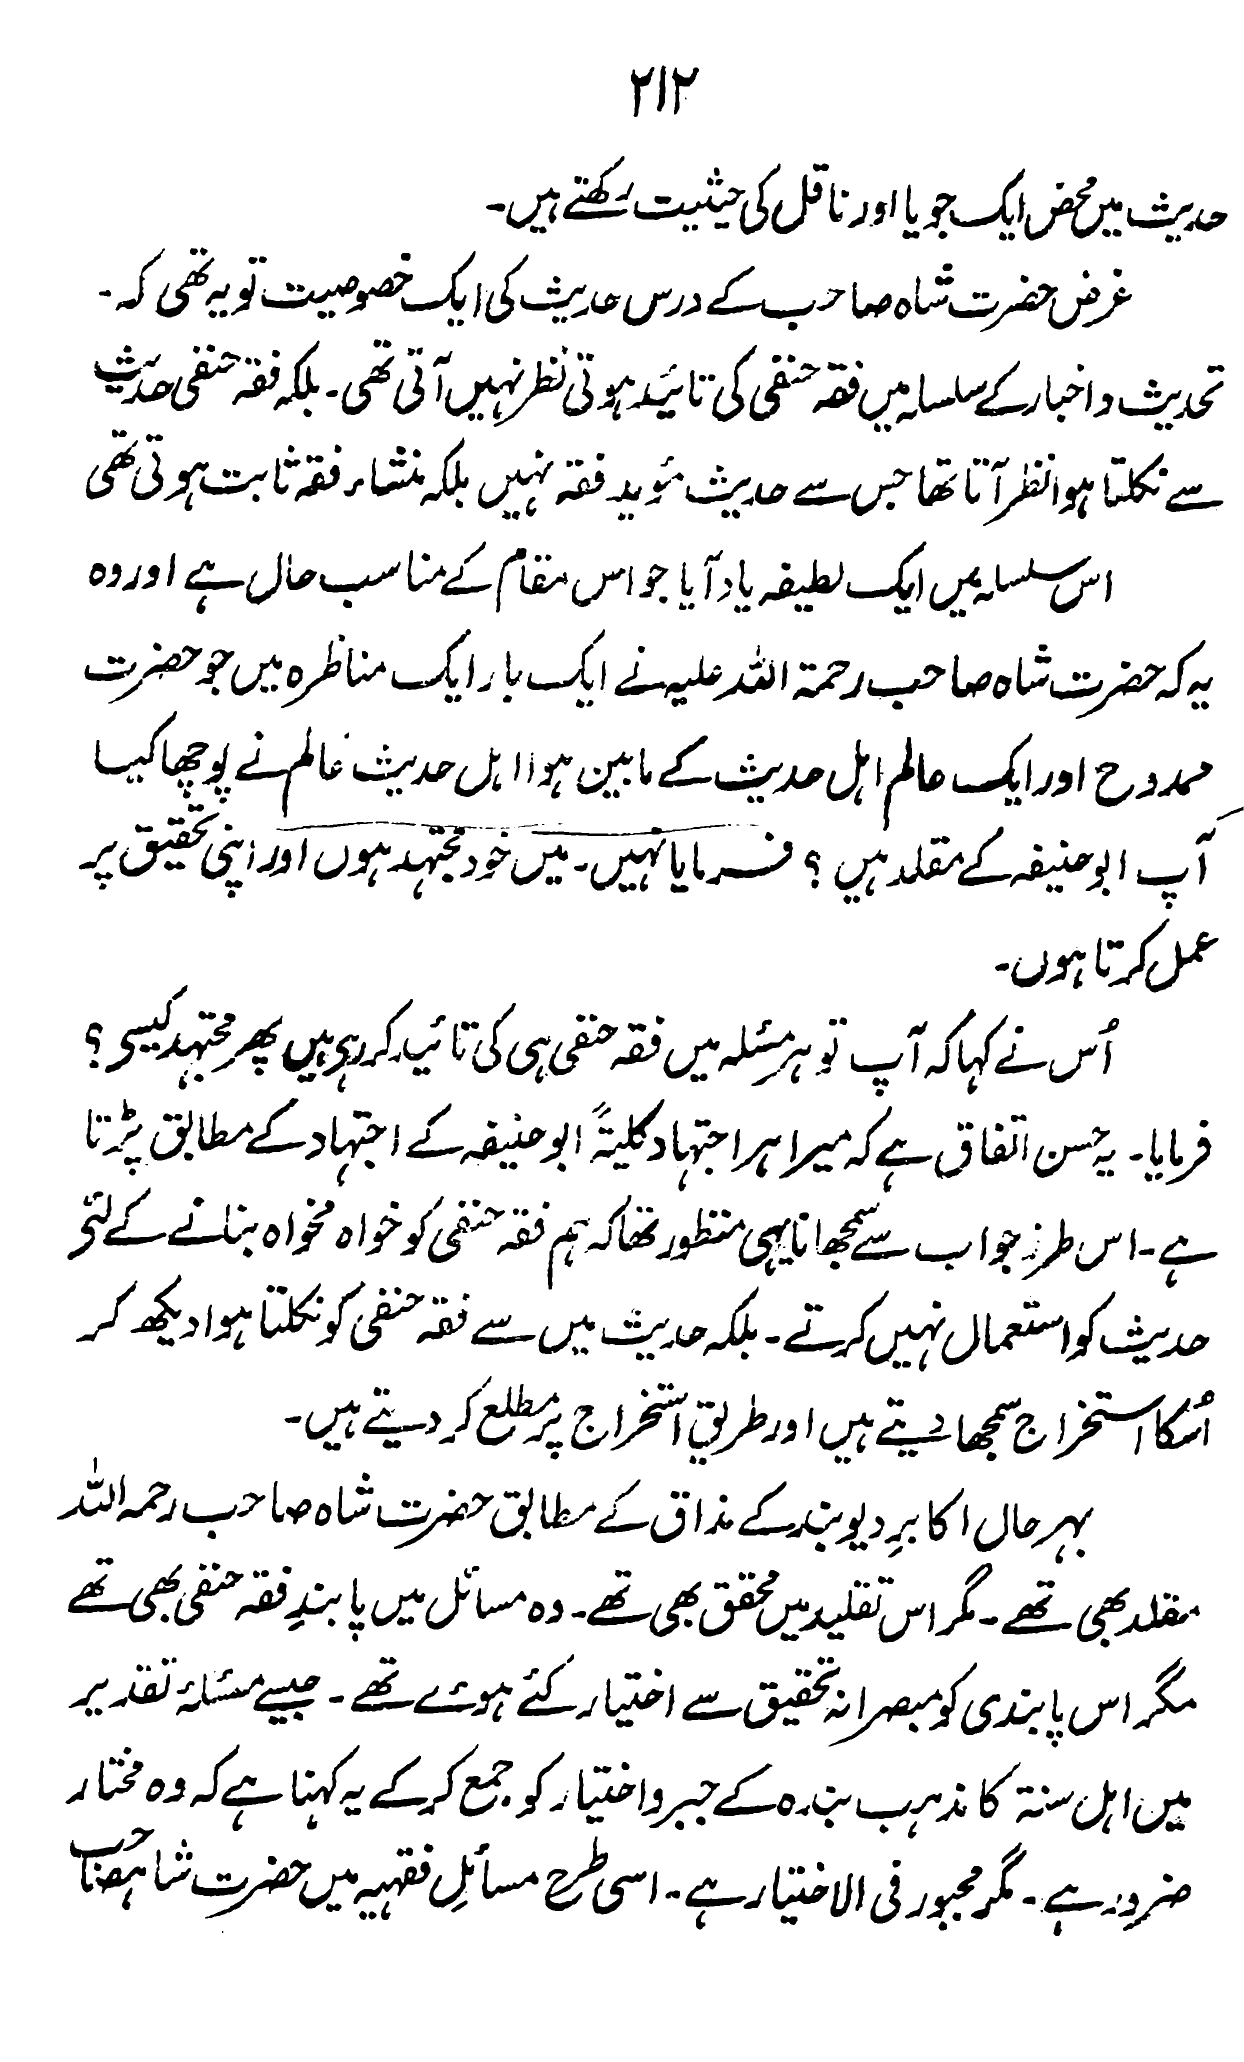 ۲۱۲
حدیث میں محض ایک جویا اور ناقل کی حیثیت رکھتے ہیں۔
غرض حضرت شاہ صاحب کے درس حدیث کی ایک خصوصیت تو یہ تھی کہ۔
تحدیث و اخبار کے سلسلہ میں فقہ حنفی کی تائید ہوتی نظر نہیں آتی تھی۔ بلکہ فقہ حنفی حدیث
سے نکلتا ہوا نظر آتا تھا جس سے حدیث مؤید فقہ نہیں بلکہ منشاء فقہ ثابت ہوتی تھی
اس سلسلہ میں ایک لطیفہ یاد آیا جو اس مقام کے مناسب حال ہے اور وہ
یہ کہ حضرت شاہ صاحب رحمۃ اللہ علیہ نے ایک بار ایک مناظرہ میں جو حضرت
ممدوح اور ایک عالم اہل حدیث کے مابین ہوا اہل حدیث عالم نے پوچھا کیا
آپ ابو حنیفہ کے مقلد ہیں ؟ فرمایا نہیں۔ میں خود مجتہد ہوں اور اپنی تحقیق پر
عمل کرتا ہوں۔
اُس نے کہا کہ آپ تو ہر مسئلہ میں فقہ حنفی ہی کی تائید کر رہی ہیں پھر مجتہد کیسی ؟
فرمایا۔ یہ حسن اتفاق ہے کہ میرا ہر اجتہاد کلیۃً ابو حنیفہ کے اجتہاد کے مطابق پڑتا
ہے۔ اس طرز جواب سے سمجھانا یہی منظور تھا کہ ہم فقہ حنفی کو خواہ مخواہ بنانے کے لئی
حدیث کو استعمال نہیں کرتے۔ بلکہ حدیث میں سے فقہ حنفی کو نکلتا ہوا دیکھ کر
اُسکا استخراج سمجھا دیتے ہیں اور طریق استخراج پر مطلع کر دیتے ہیں۔
بہر حال اکابرِ دیوبند کے مذاق کے مطابق حضرت شاہ صاحب رحمہ اللہ
مقلد بھی تھے۔ مگر اس تقلید میں محقق بھی تھے۔ وہ مسائل میں پابندِ فقہ حنفی بھی تھے
مگر اس پابندی کو مبصرانہ تحقیق سے اختیار کئے ہوئے تھے۔ جیسے مسئلۂ تقدیر
میں اہل سنۃ کا مذہب بندہ کے جبر و اختیار کو جمع کر کے یہ کہنا ہے کہ وہ مختار
ضرور ہے۔ مگر مجبور فی الاختیار ہے۔ اسی طرح مسائلِ فقہیہ میں حضرت شاہصاحب